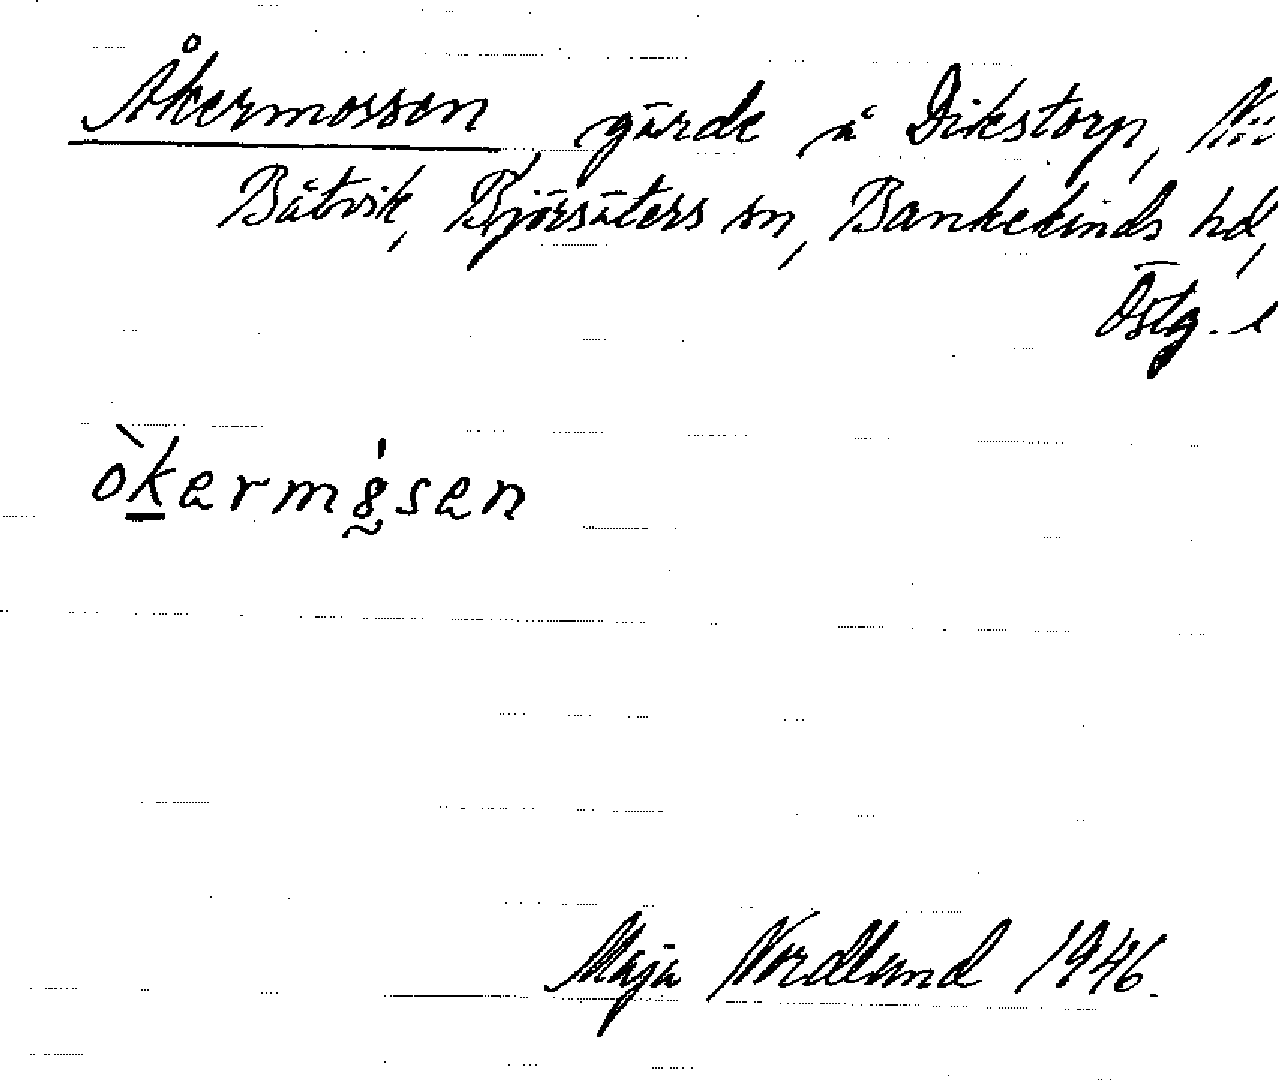 Åkermossen gärde å Dikstorp,
Båtvik, Björsäters sn, Bankekinds hd,
Östg. l
òkermósen
Maja Nordlund 1946.